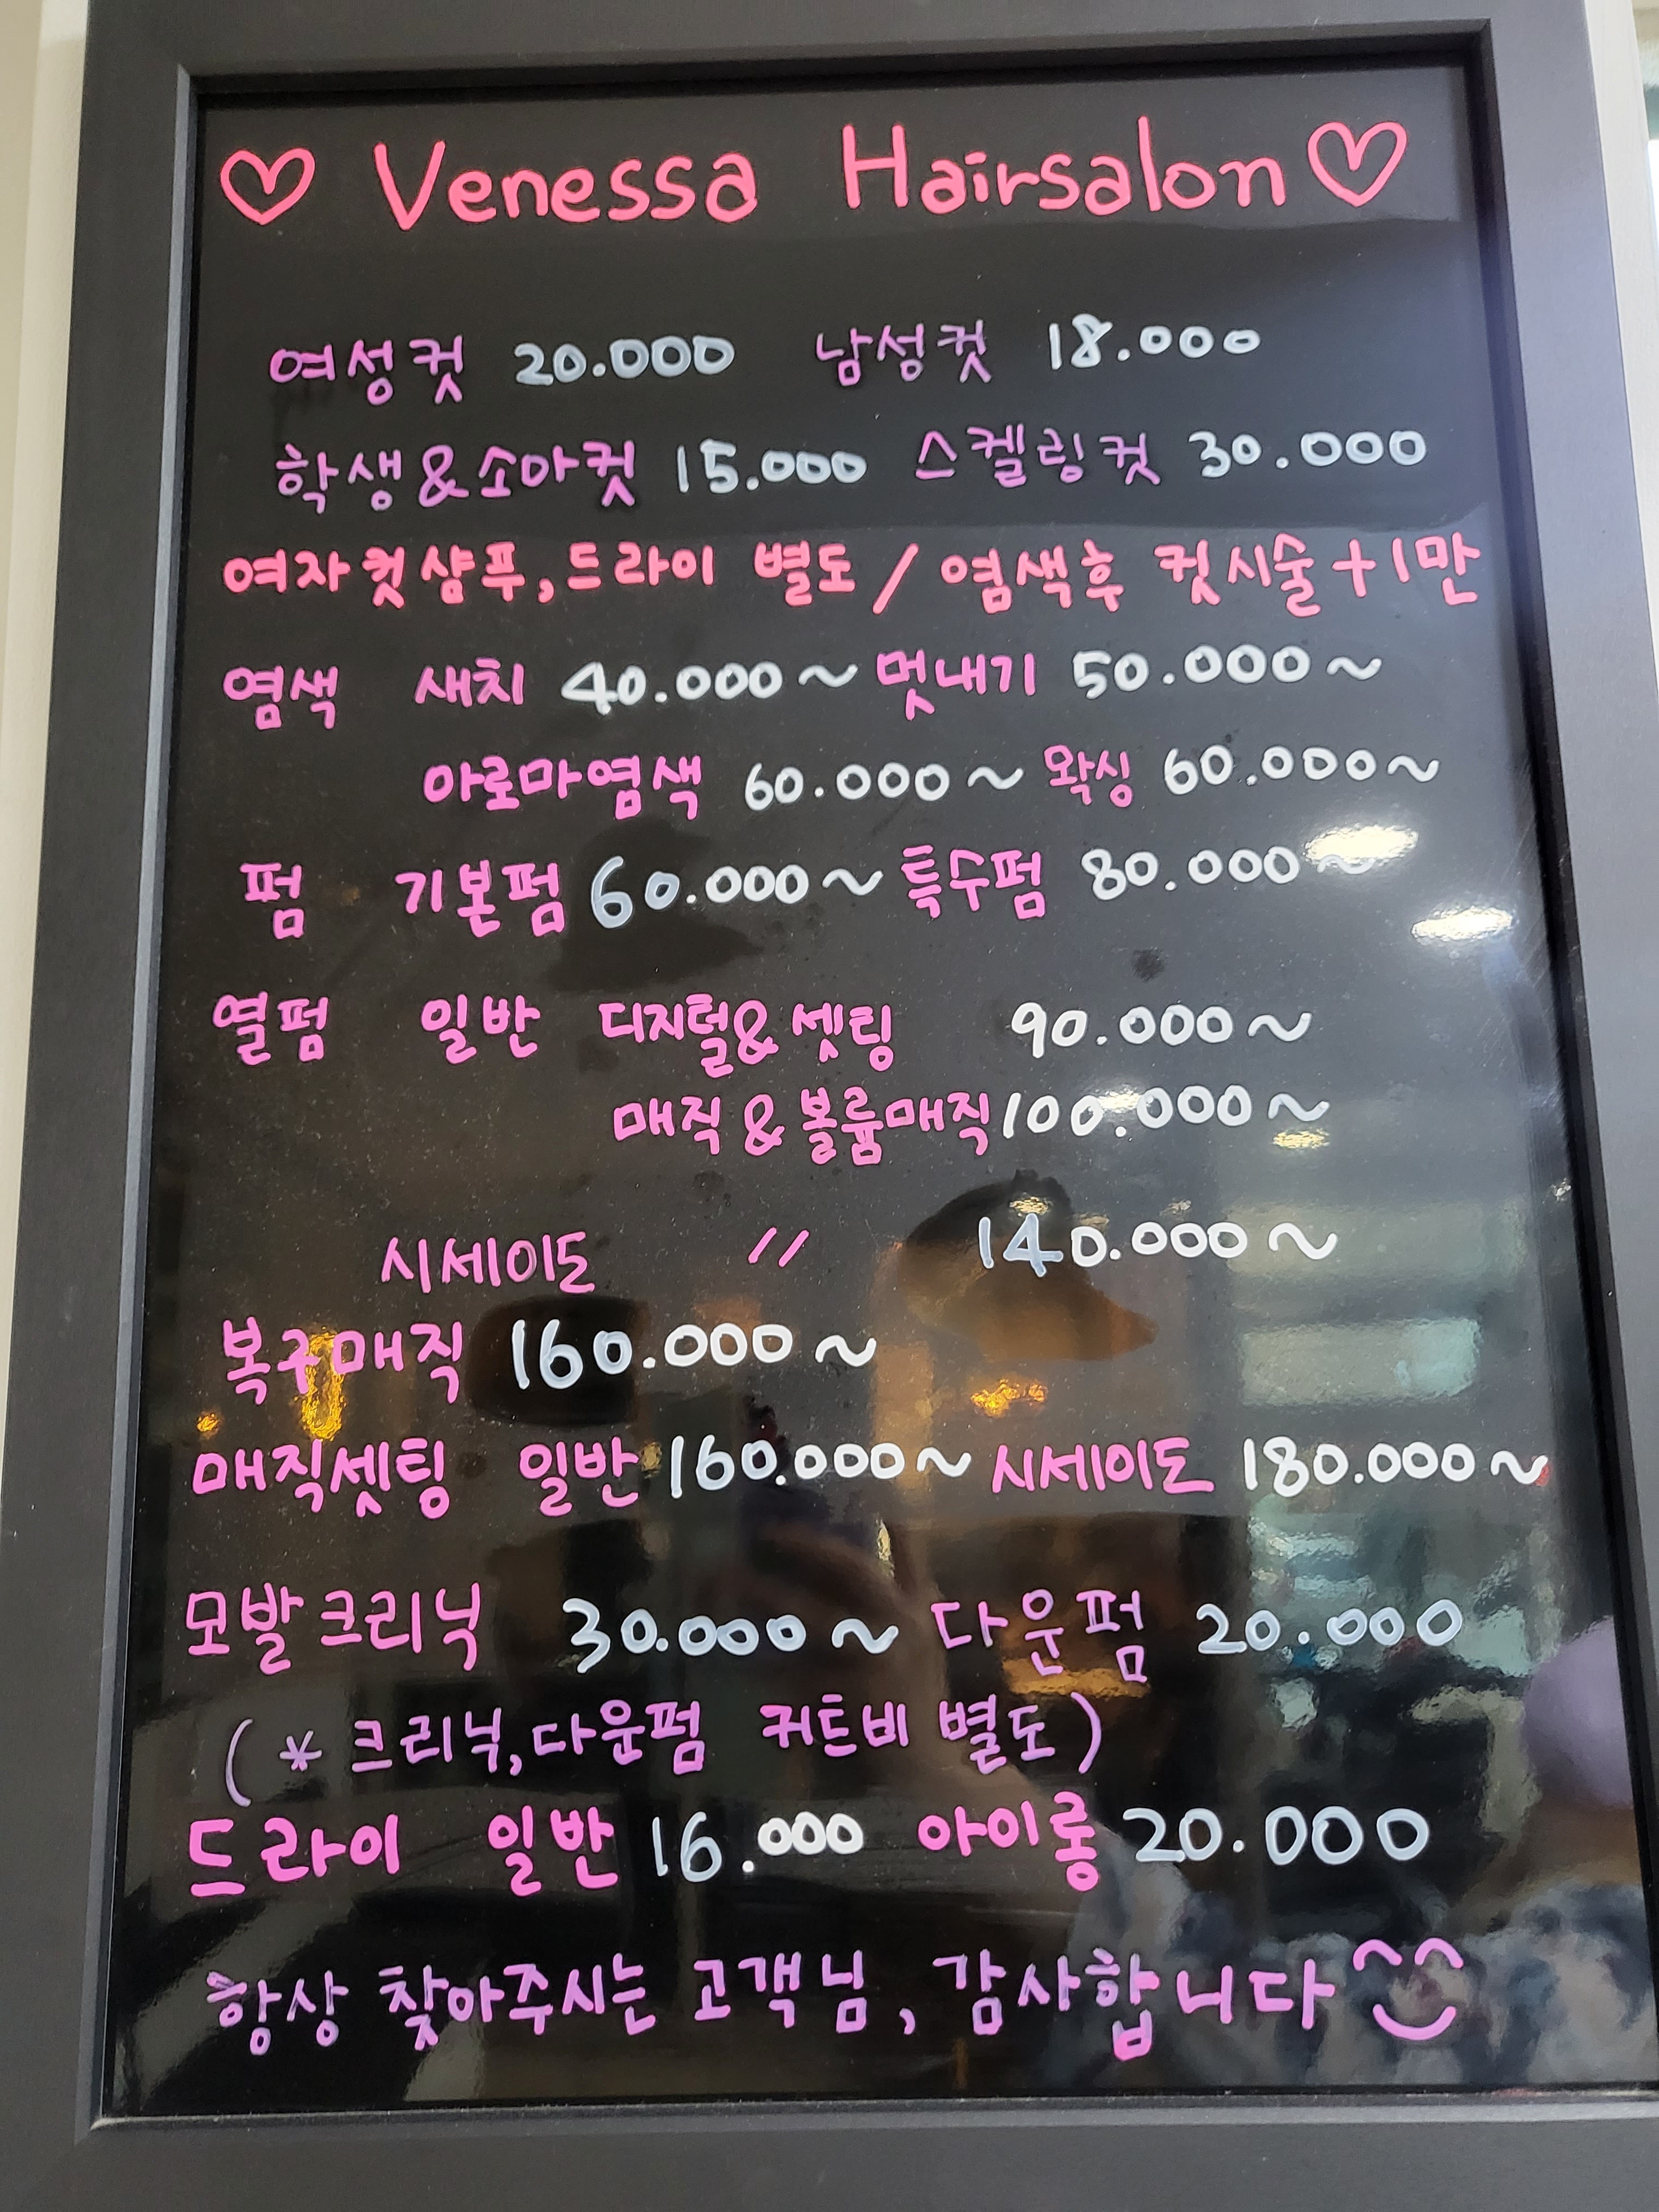 ♡ Venessa Hairsalon ♡
여성컷 20.000 남성컷 18.000
학생&소아컷 15.000 스켈링컷 30.000
여자컷샴푸,드라이 별도 / 염색후 컷시술+1만
염색 새치 40.000~ 멋내기 50.000~
아로마염색 60.000~ 왁싱 60.000~
펌 기본펌 60.000~ 특수펌 80.000~
열펌 일반 디지털&셋팅 90.000~
매직&볼륨매직 100.000~
시세이도 〃 140.000~
복구매직 160.000~
매직셋팅 일반 160.000~ 시세이도 180.000~
모발크리닉 30.000~ 다운펌 20.000
(* 크리닉,다운펌 커트비 별도)
드라이 일반 16.000 아이롱 20.000
항상 찾아주시는 고객님, 감사합니다